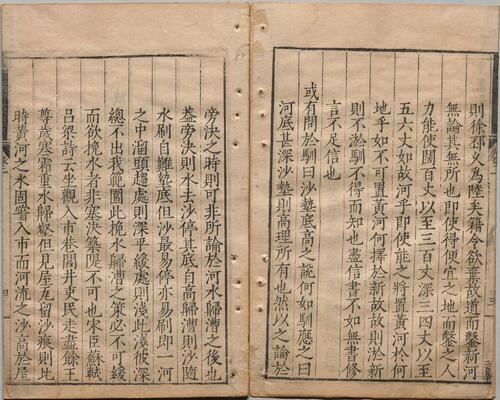 則徐邳久為陸矣籍令欲棄故道而鑿新河
無論其無所也即使得便宜之地而鑿之人
力能使闊百丈以至三百丈深三四丈以至
五六丈如故河乎即使能之將置黃河於何
地乎如不可置黃河何擇於新故故則淤新
則不淤馴不得而知也盡信書不如無書修
言不足信也
或有問於馴曰沙墊底高之說何如馴應之曰
河底甚深沙墊則高理所有也然以之論於
旁決之時則可非所論於河水歸漕之後也
蓋旁決則水去沙停其底自高歸漕則沙隨
水刷自難墊底但沙最易停亦易刷即一河
之中溜頭趨處則深平緩處則淺此淺彼深
總不出我範圍此挽水歸漕之策必不可緩
而欲挽水者非塞決築隄不可也宋臣蘇軾
呂梁詩云坐觀入市卷閭井吏民走盡餘王
尊歲寒霜重水歸壑但見屋瓦留沙痕則比
時黃河之水固嘗入市而河流之沙高於屋